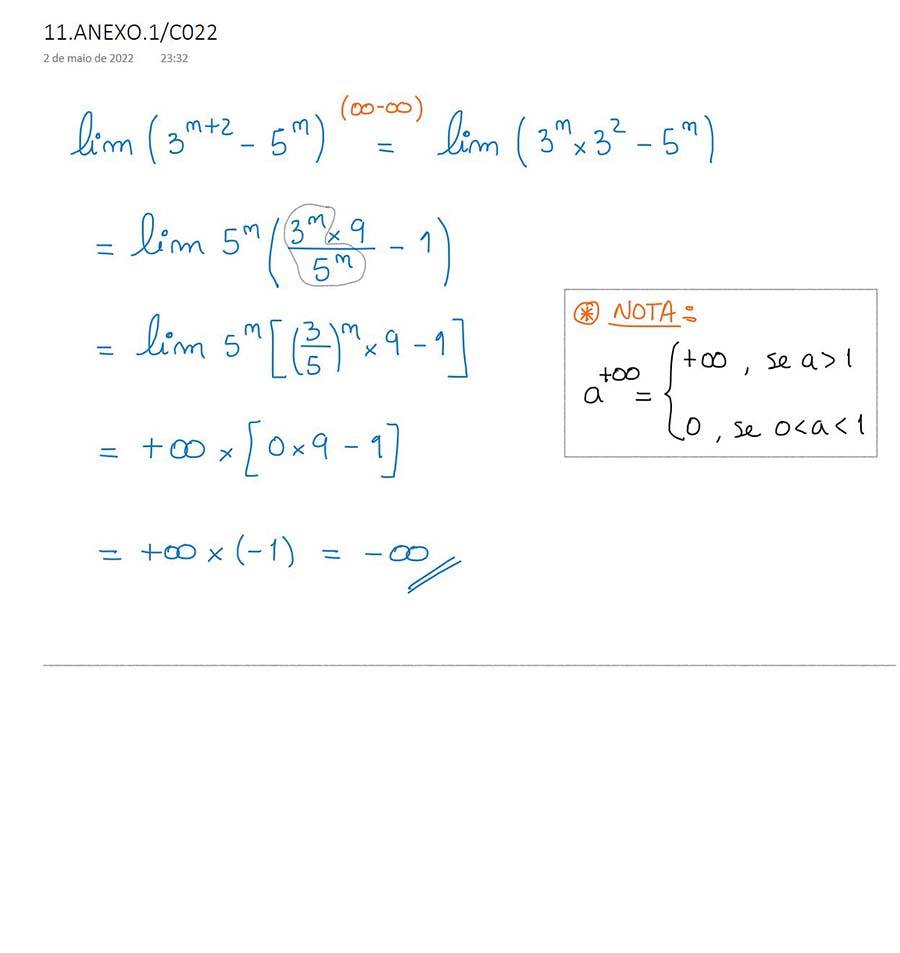 11.ANEXO.1/C022
2 de maio de 2022 23:32
lim (3^{n+2} - 5^n) (∞-∞) = lim (3^n × 3^2 - 5^n)
= lim 5^n ( \frac{3^n × 9}{5^n} - 1 )
= lim 5^n [ (\frac{3}{5})^n × 9 - 1 ]
= +∞ × [ 0 × 9 - 1 ]
= +∞ × (-1) = -∞
⊛ NOTA:
a^{+∞} = { +∞ , se a > 1
0 , se 0 < a < 1